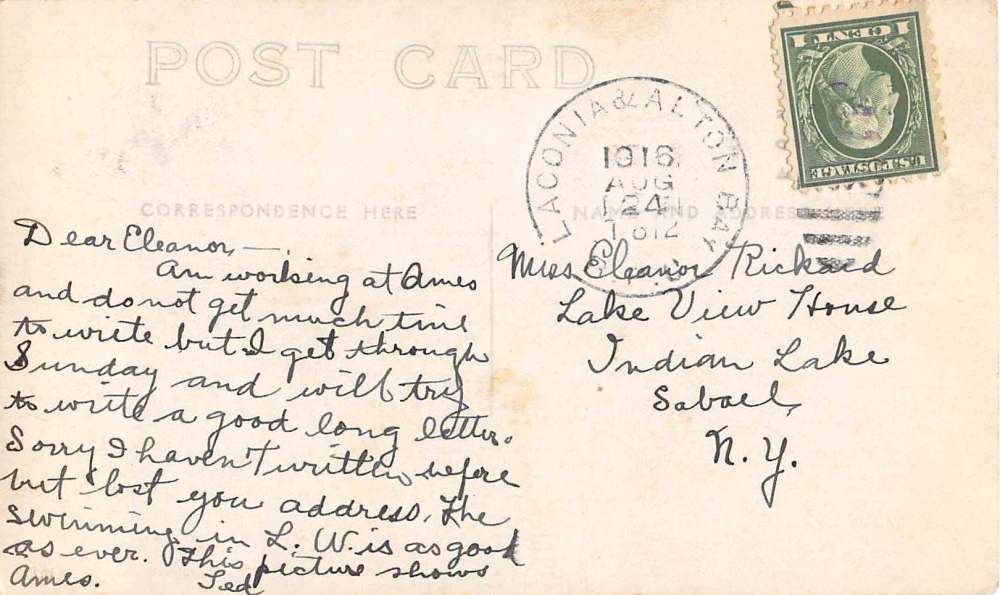 POST CARD
LACONIA & ALTON BAY
1916
AUG
24
T.812
1 CENT 1
U.S. POSTAGE
CORRESPONDENCE HERE
NAME AND ADDRESS HERE
Dear Eleanor, —
Am working at Ames
and do not get much time
to write but I get through
Sunday and will try
to write a good long letter.
Sorry I haven't written before
but lost you address. The
swimming in L. W. is as good
as ever. This picture shows
Ames. Ted
Miss Eleanor Rickard
Lake View House
Indian Lake
Sabael,
N. Y.